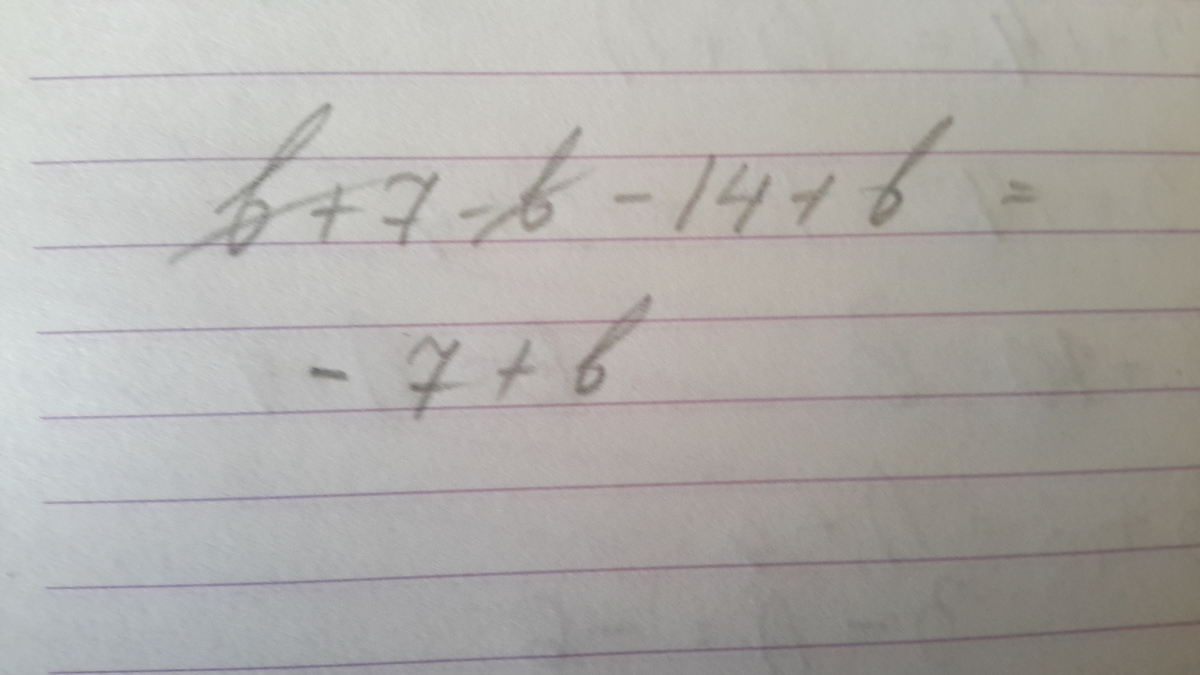 b + 7 - b - 14 + b =
- 7 + b